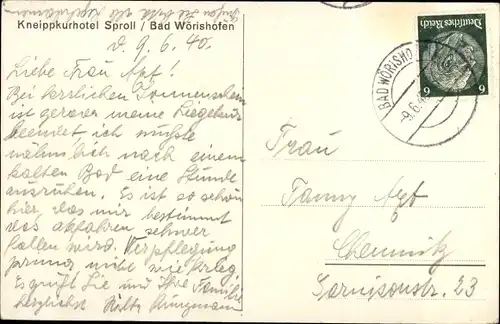 Kneippkurhotel Sproll / Bad Wörishofen
d. 9. 6. 40.
Liebe Frau Apf!
Bei herrlichen Sonnenschein
ist gerade meine Liegekur
beendet ich mußte
nähmlich nach einem
kalten Bad eine Stunde
ausruhen. Es ist so schön
hier, das mir bestimmt
das abfahren schwer
fallen wird. Verpflegung
prima, nicht wie Krieg.
Es grüßt Sie und Ihre Familie
herzlichst
Frau
Fanny Apf
Chemnitz
Garnisonstr. 23
BAD WÖRISHO
-9.6.4
Deutsches Reich
6 6